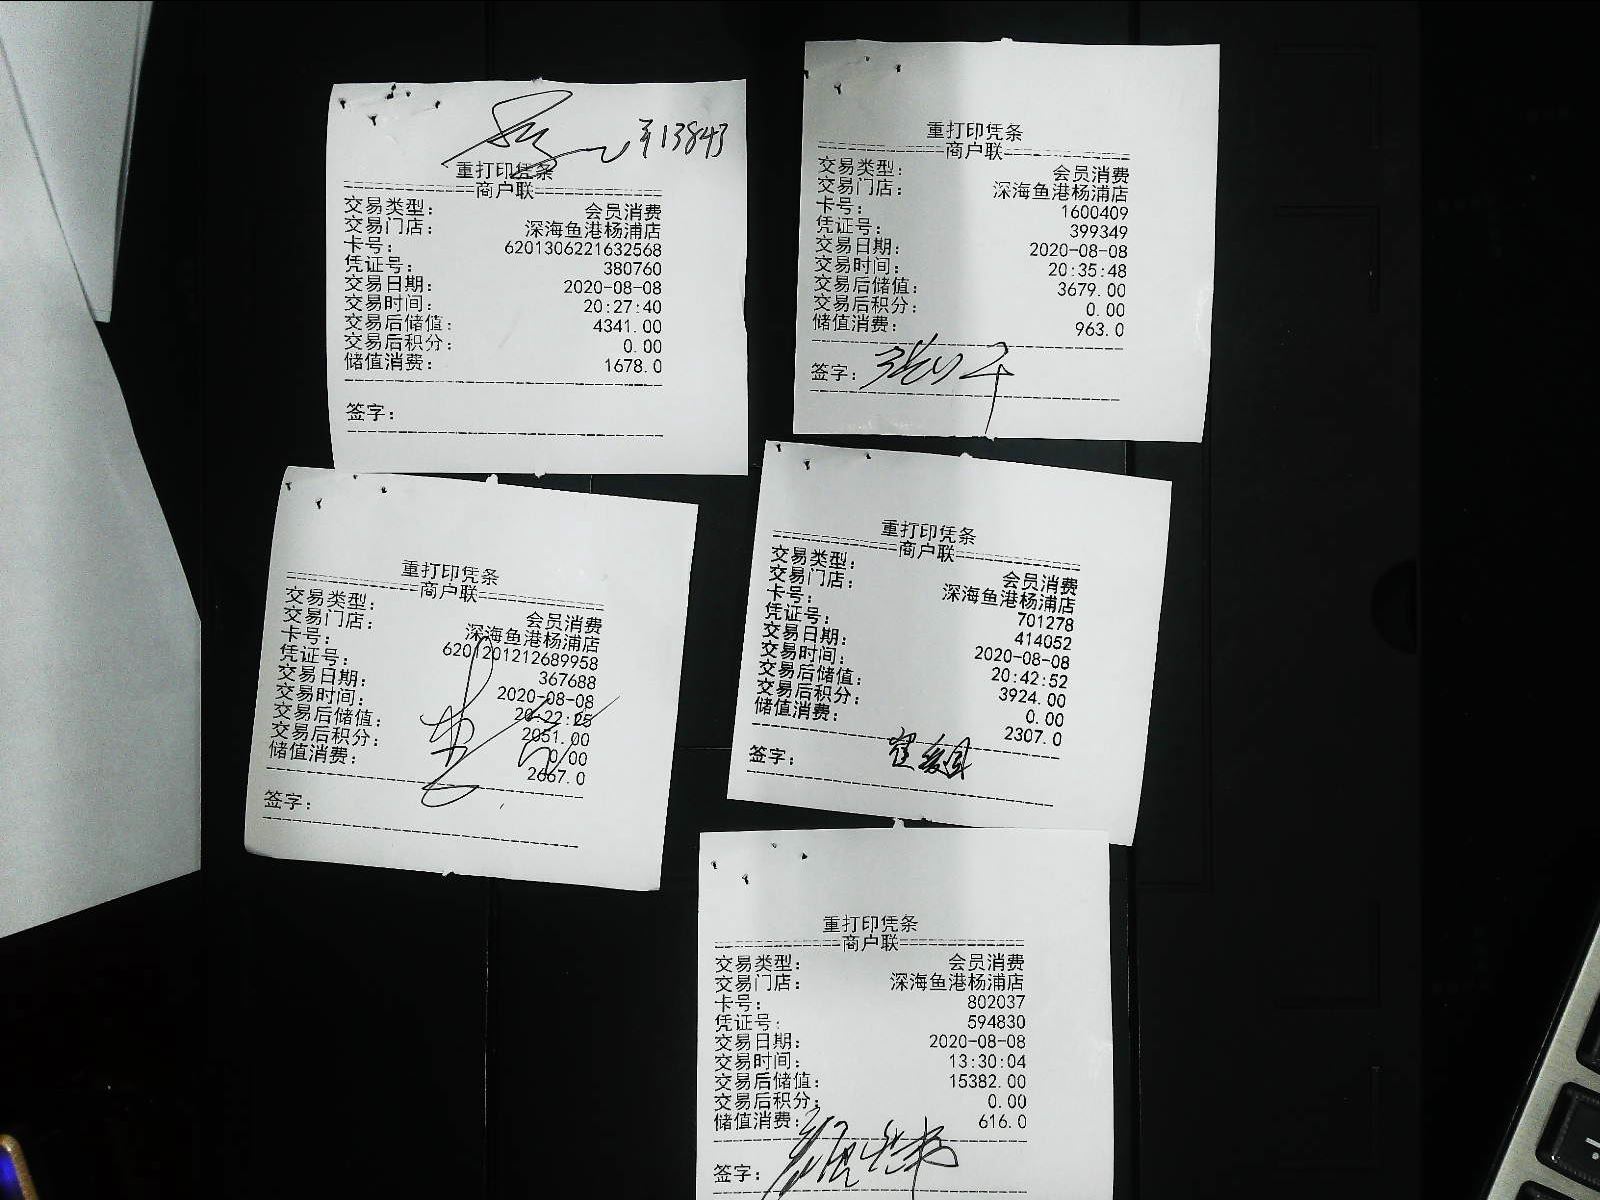 ¥13843
重打印凭条
商户联
交易类型: 会员消费
交易门店: 深海鱼港杨浦店
卡号: 6201306221632568
凭证号: 380760
交易日期: 2020-08-08
交易时间: 20:27:40
交易后储值: 4341.00
交易后积分: 0.00
储值消费: 1678.0
签字:
重打印凭条
商户联
交易类型: 会员消费
交易门店: 深海鱼港杨浦店
卡号: 1600409
凭证号: 399349
交易日期: 2020-08-08
交易时间: 20:35:48
交易后储值: 3679.00
交易后积分: 0.00
储值消费: 963.0
签字:
重打印凭条
商户联
交易类型: 会员消费
交易门店: 深海鱼港杨浦店
卡号: 6201201212689958
凭证号: 367688
交易日期: 2020-08-08
交易时间: 20:22:25
交易后储值: 2051.00
交易后积分: 0.00
储值消费: 2667.0
签字:
重打印凭条
商户联
交易类型: 会员消费
交易门店: 深海鱼港杨浦店
卡号: 701278
凭证号: 414052
交易日期: 2020-08-08
交易时间: 20:42:52
交易后储值: 3924.00
交易后积分: 0.00
储值消费: 2307.0
签字:
重打印凭条
商户联
交易类型: 会员消费
交易门店: 深海鱼港杨浦店
卡号: 802037
凭证号: 594830
交易日期: 2020-08-08
交易时间: 13:30:04
交易后储值: 15382.00
交易后积分: 0.00
储值消费: 616.0
签字: